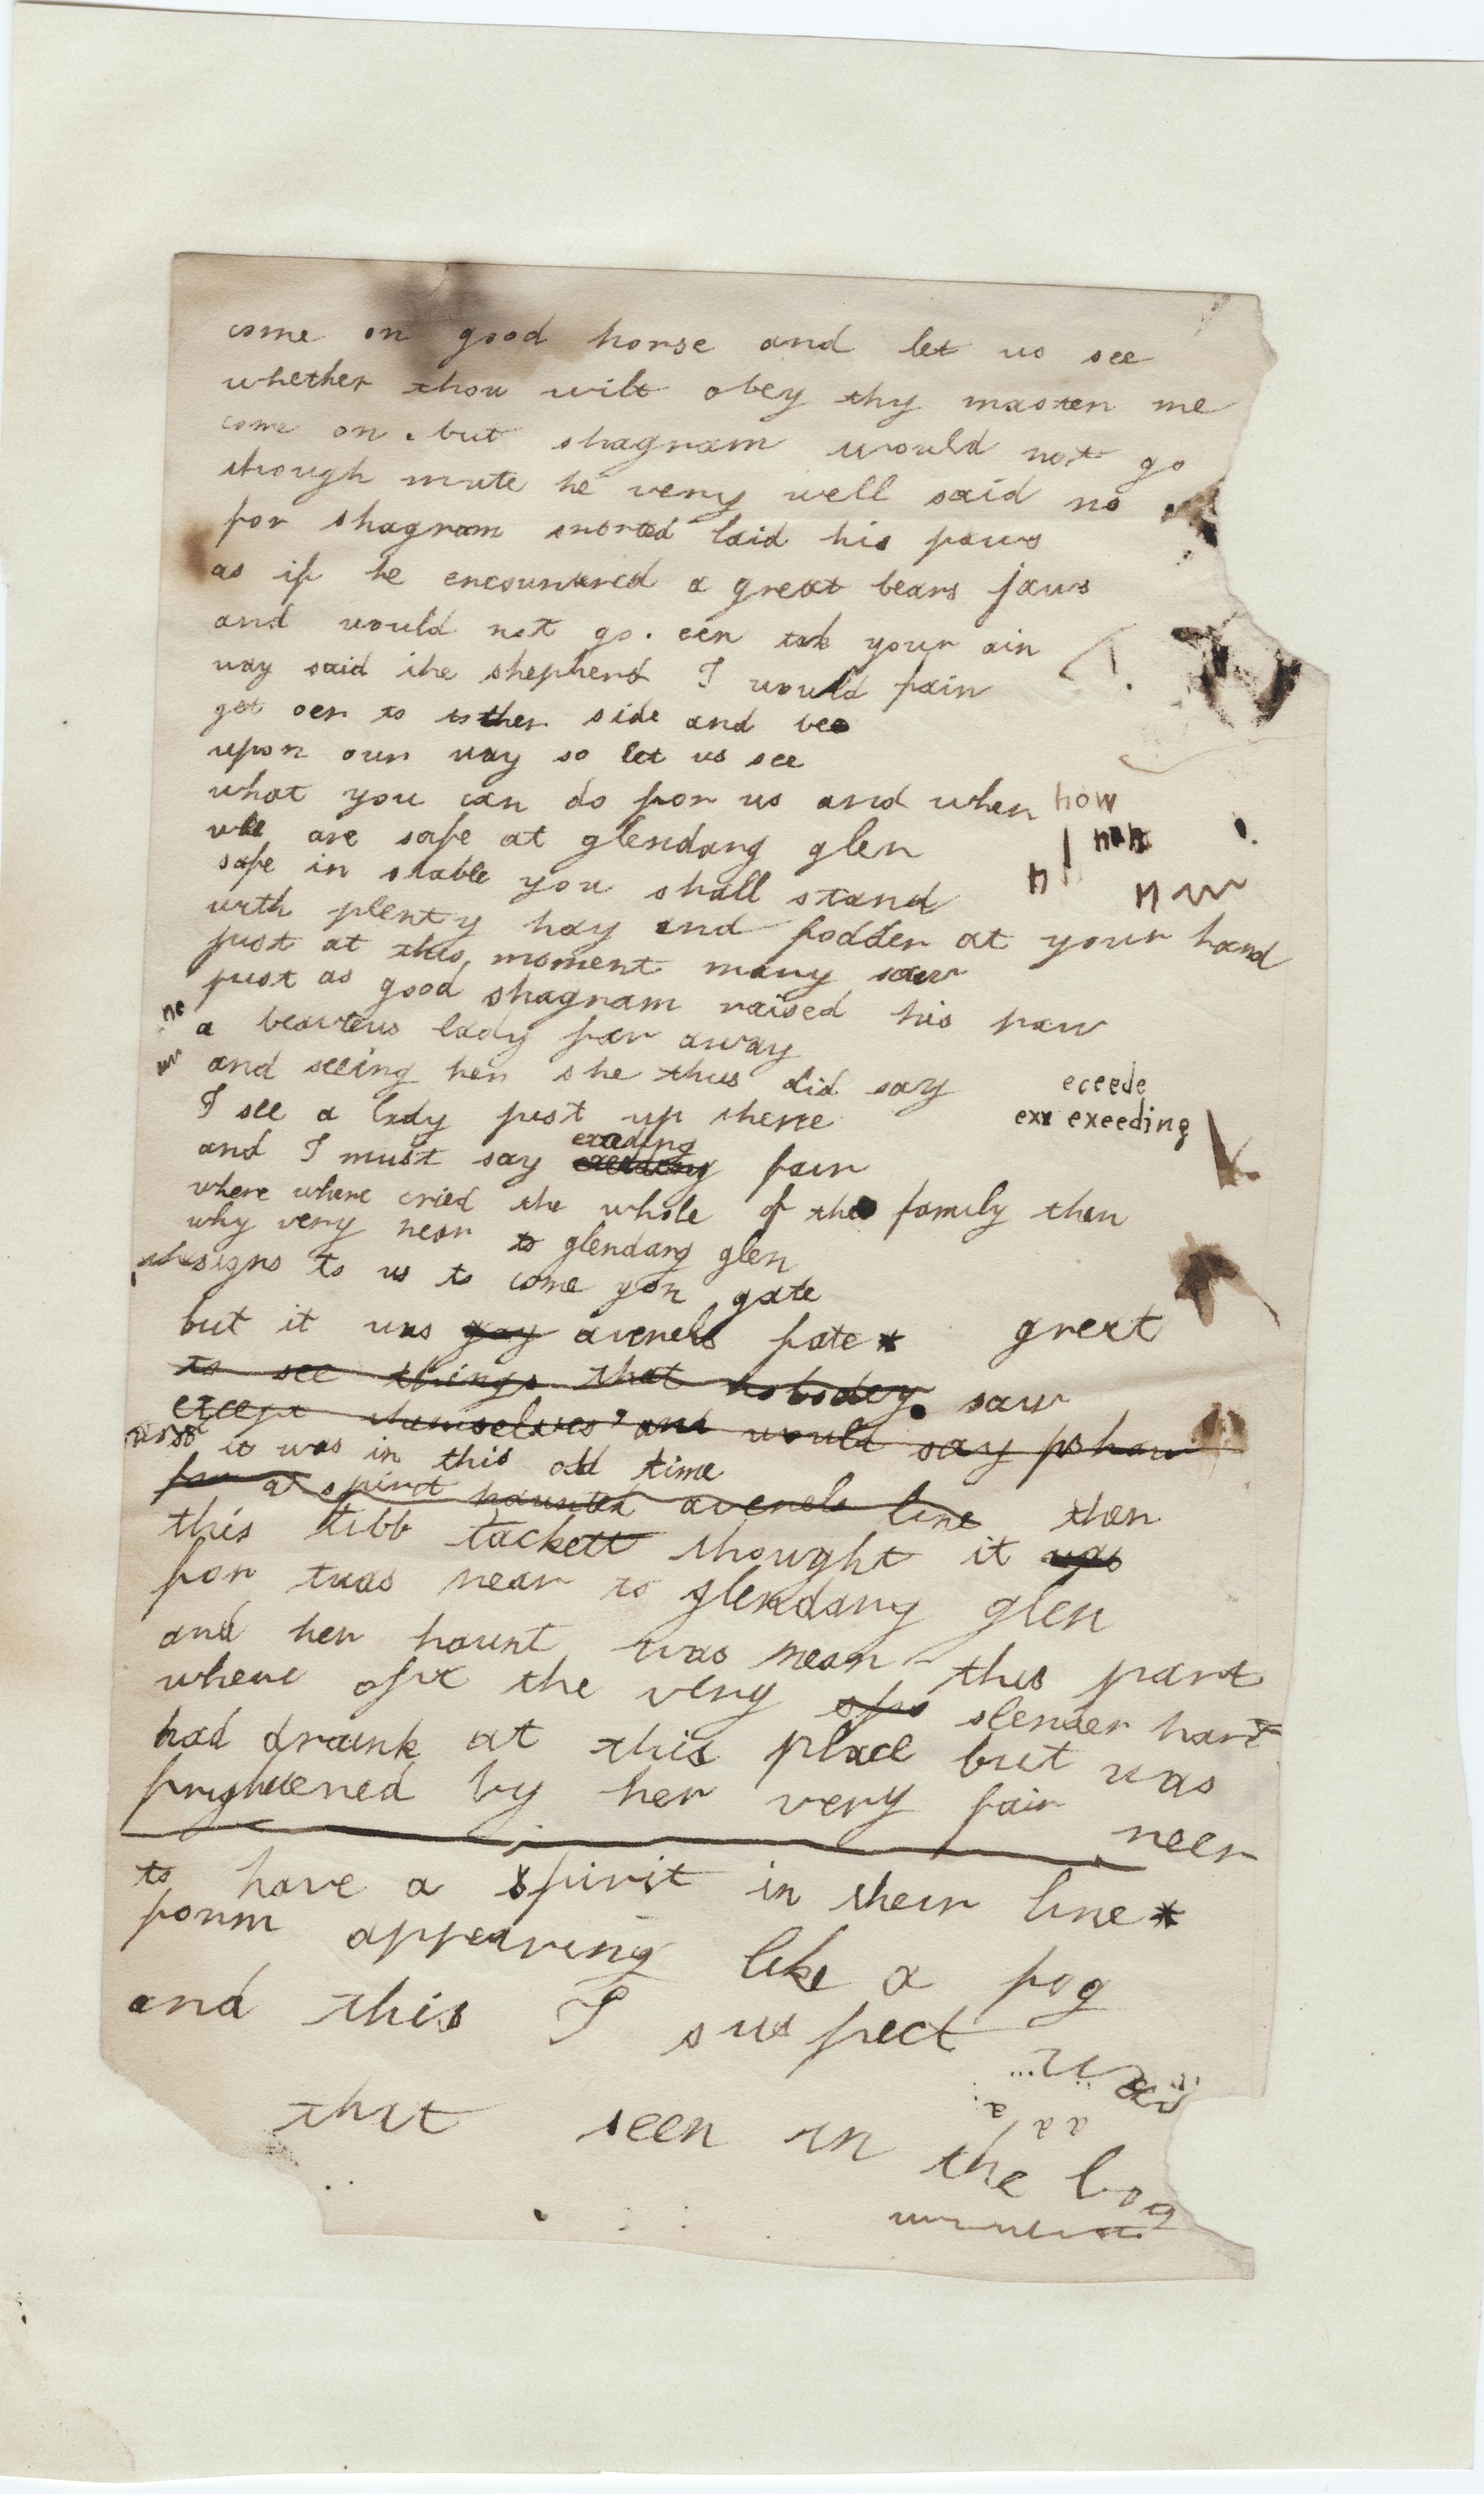 come on good horse and let us see
whether thou wilt obey thy master me
come on . but shagram would not go
though mute he very well said no
for shagram snorted laid his paws
as if he encountered a great bears jaws
and would not go . een tak your ain
way said the shepherd I would fain
get oer to tother side and bee
upon our way so let us see
what you can do for us and when how
we are safe at glendarg glen
safe in stable you shall stand
with plenty hay and fodder at your hand
just at this moment mary saw
just as good shagram raised his paw
a beauteus lady far away
and seeing her she thus did say eceede
I see a lady just up there exx exeeding
exeeding
and I must say exeeding fair
where where cried the whole of the family then
why very near to glendarg glen
signs to us to come yon gate
but it was gay avenels fate * great
to see things that nobodey saw
except themselves and would say pshaw
it was in this old time
for a spirit haunted avenels line than
this tibb tackett thought it was
for twas near to glendarg glen
and her haunt was near this part
where oft the very slender hart
had drank at this place but was
frightened by her very fair
neer
to have a spirit in their line *
form appearing like a fog
and this I suspect was
that seen in the bog